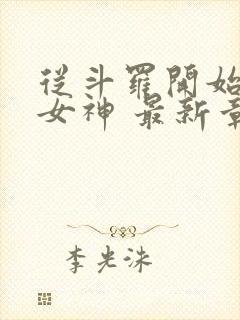 從斗羅開始
女神 最新章
李光洙